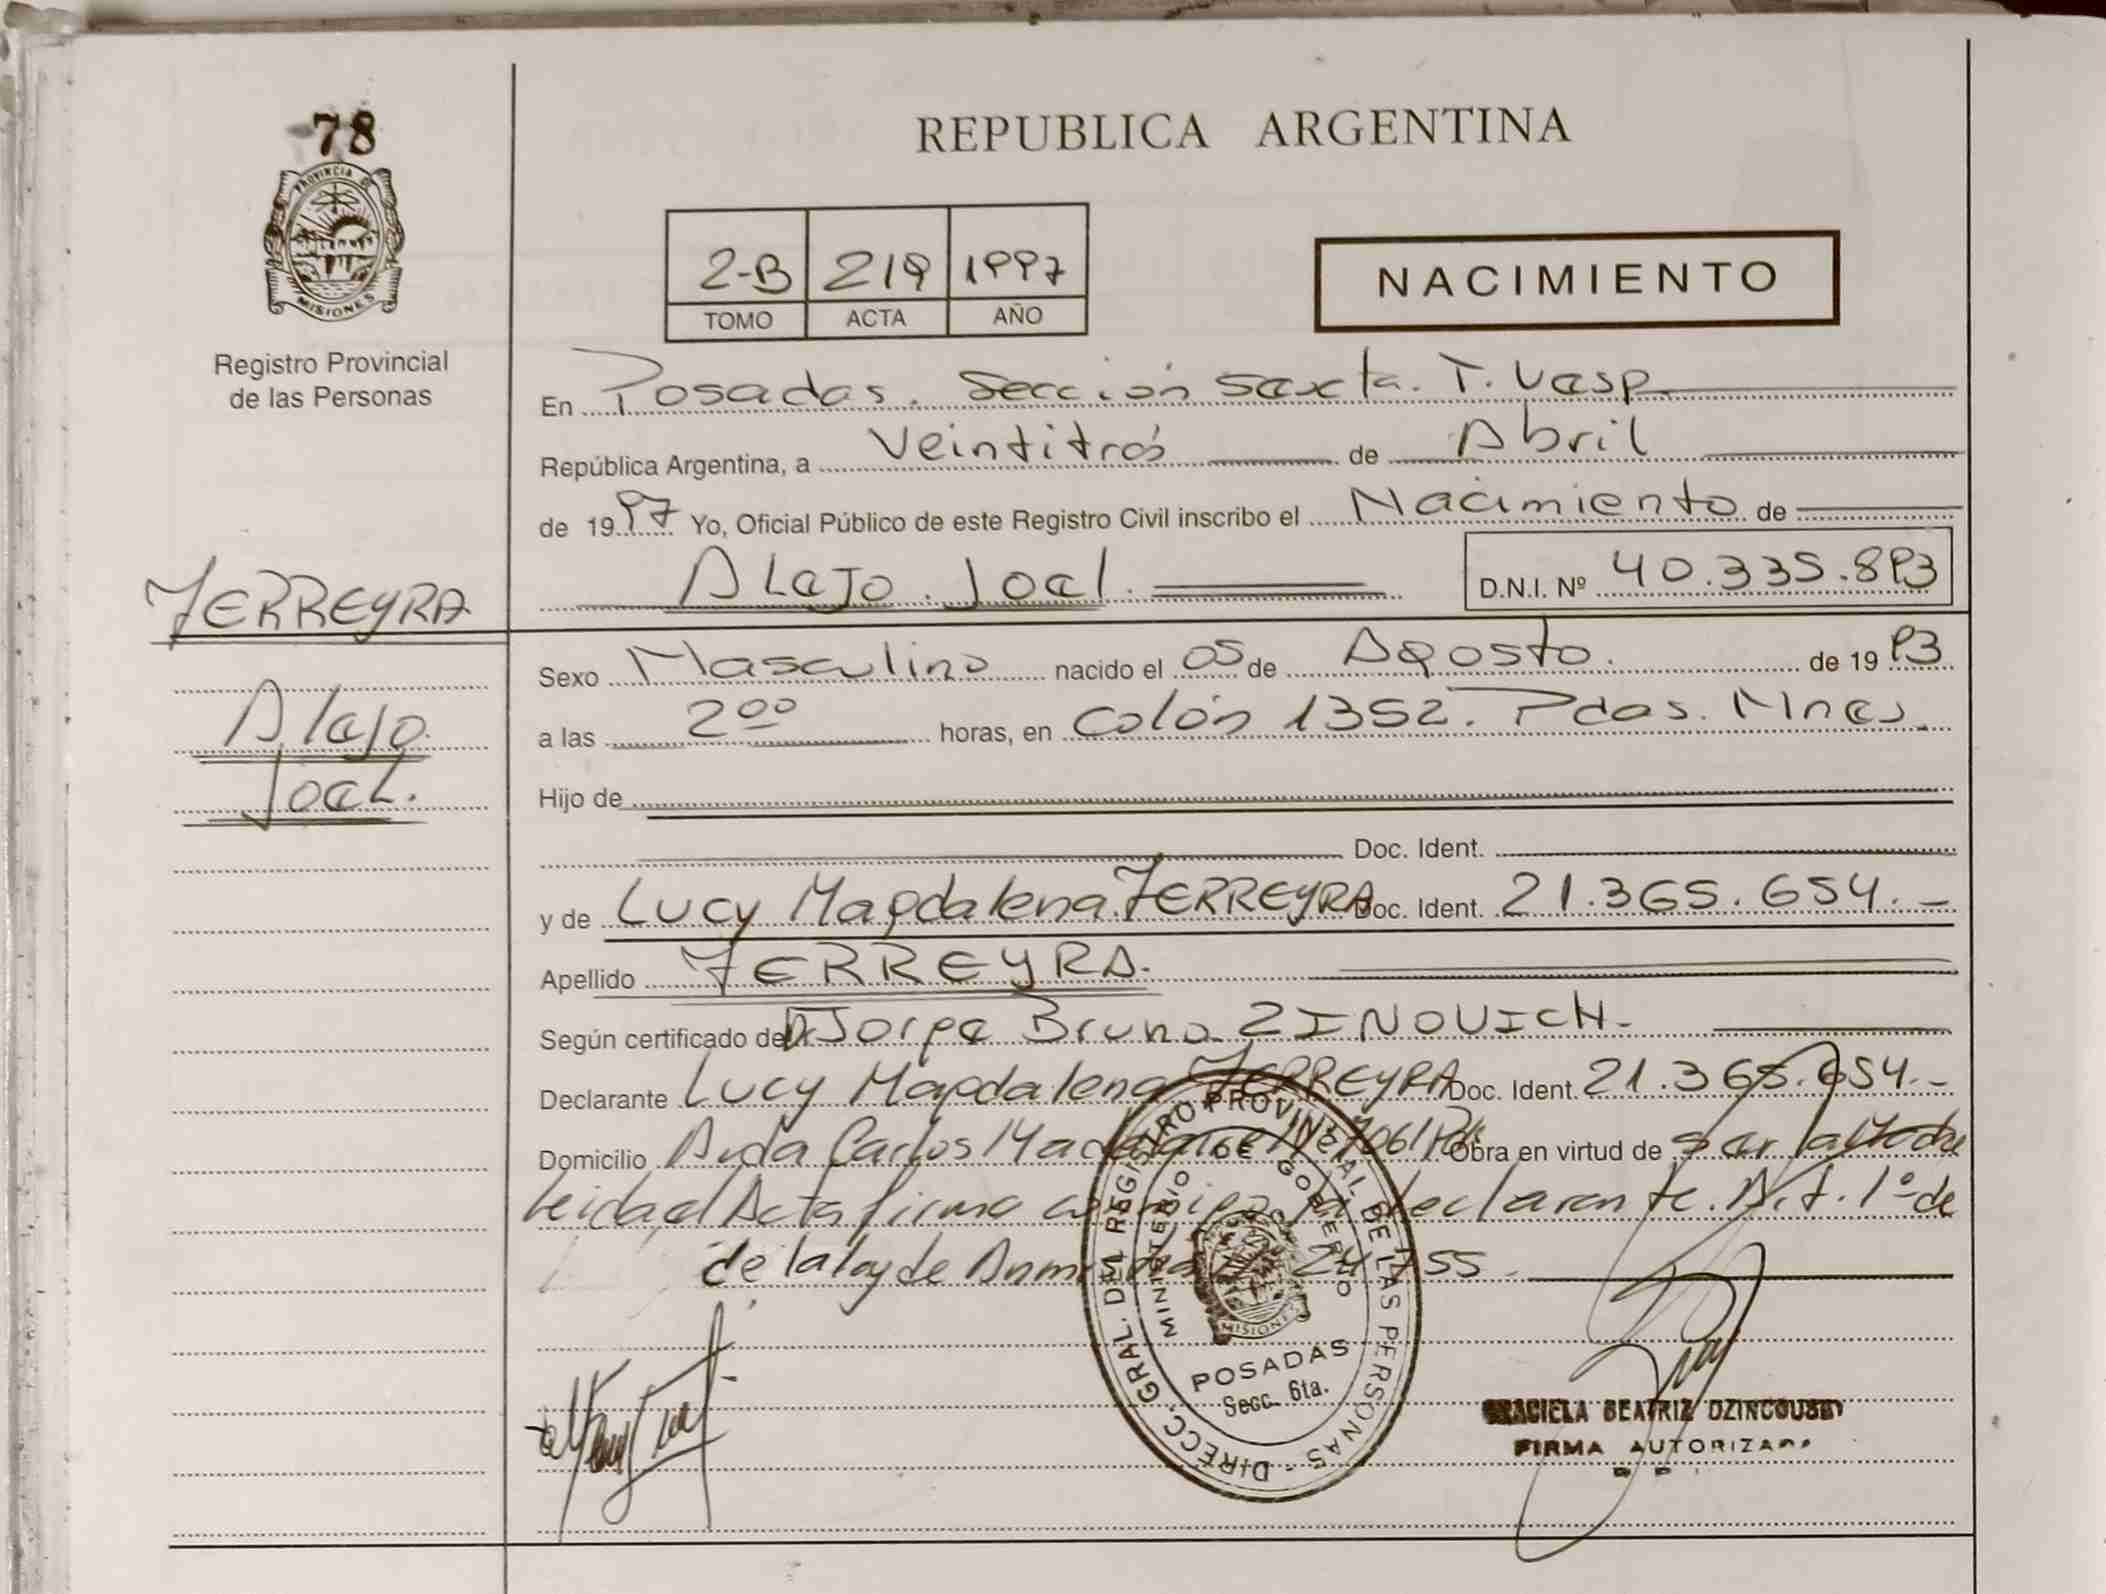 78
PROVINCIA DE
MISIONES
Registro Provincial
de las Personas
FERREYRA
Alejo
Joel.
REPUBLICA ARGENTINA
2-B 219 1997
TOMO ACTA AÑO
NACIMIENTO
En Posadas. Sección Sexta. T. Vesp.
República Argentina, a Veintitrés de Abril
de 1997 Yo, Oficial Público de este Registro Civil inscribo el Nacimiento de
Alejo. Joel. D.N.I. Nº 40.335.893
Sexo Masculino nacido el 05 de Agosto. de 1993
a las 2⁰⁰ horas, en Colón 1352. Pdas. Mnes.
Hijo de
Doc. Ident.
y de Lucy Magdalena FERREYRA Doc. Ident. 21.365.654.-
Apellido FERREYRA.
Según certificado de Dr. Jorge Bruno ZINOVICH.-
Declarante Lucy Magdalena FERREYRA Doc. Ident. 21.365.654.-
Domicilio Avda Carlos Obra en virtud de ser la Madre
leida el Acta firma la declarante. Art. 1º de
de la ley de 24755.
DIRECC. GRAL. DEL REGISTRO PROVINCIAL DE LAS PERSONAS -
MINISTERIO DE GOBIERNO
MISIONES
POSADAS
Secc. 6ta.
GRACIELA BEATRIZ
FIRMA AUTORIZADA